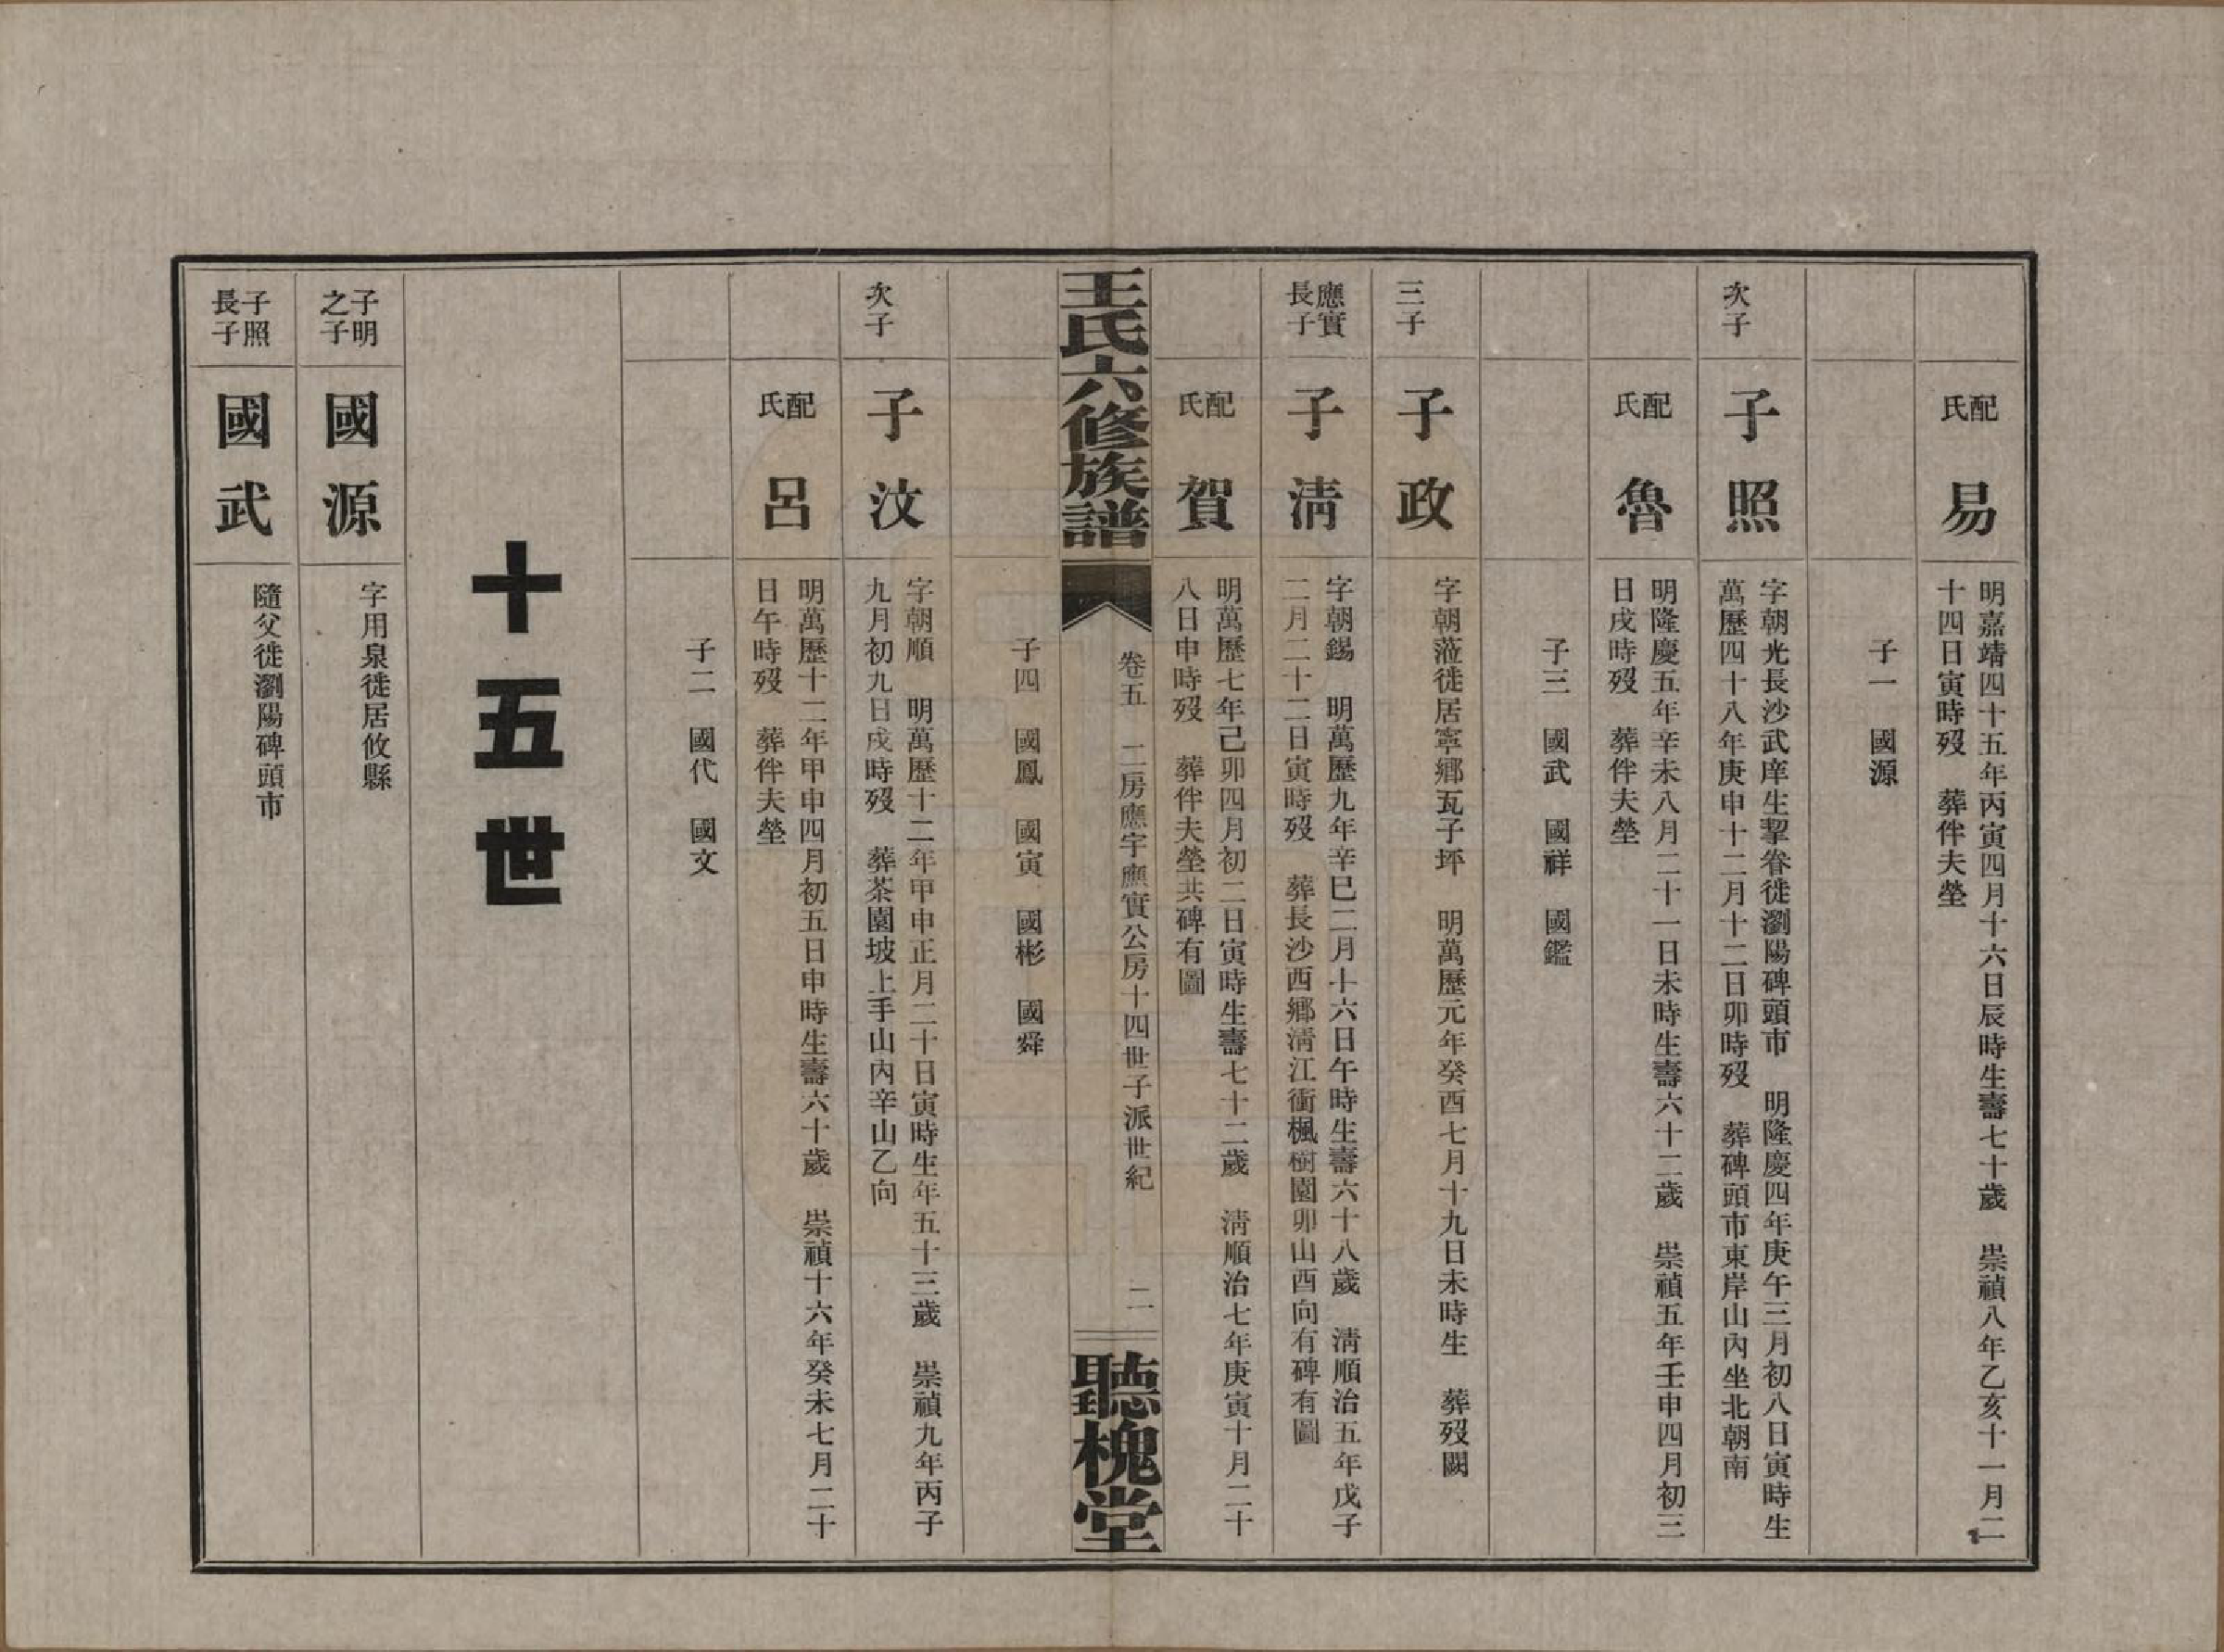 配氏 易
明嘉靖四十五年丙寅四月十六日辰時生壽七十歲 崇禎八年乙亥十一月二
十四日寅時歿 葬伴夫塋
子一 國源
次子 子照
字朝光長沙武庠生挈眷徙瀏陽碑頭市 明隆慶四年庚午三月初八日寅時生
萬歷四十八年庚申十二月十二日卯時歿 葬碑頭市東岸山內坐北朝南
配氏 魯
明隆慶五年辛未八月二十一日未時生壽六十二歲 崇禎五年壬申四月初三
日戌時歿 葬伴夫塋
子三 國武 國祥 國鑑
三子 子政
字朝蒞徙居寧鄉瓦子坪 明萬歷元年癸酉七月十九日未時生 葬歿闕
應實長子 子淸
字朝錫 明萬歷九年辛巳二月十六日午時生壽六十八歲 淸順治五年戊子
二月二十二日寅時歿 葬長沙西鄉淸江衝楓樹園卯山酉向有碑有圖
配氏 賀
明萬歷七年己卯四月初二日寅時生壽七十二歲 淸順治七年庚寅十月二十
八日申時歿 葬伴夫塋共碑有圖
王氏六修族譜 卷五 二房應宇應實公房十四世子派世紀 二 聽槐堂
子四 國鳳 國寅 國彬 國舜
次子 子汶
字朝順 明萬歷十二年甲申正月二十日寅時生年五十三歲 崇禎九年丙子
九月初九日戌時歿 葬茶園坡上手山內辛山乙向
配氏 呂
明萬歷十二年甲申四月初五日申時生壽六十歲 崇禎十六年癸未七月二十
日午時歿 葬伴夫塋
子二 國代 國文
十五世
子明之子 國源
字用泉徙居攸縣
子照長子 國武
隨父徙瀏陽碑頭市